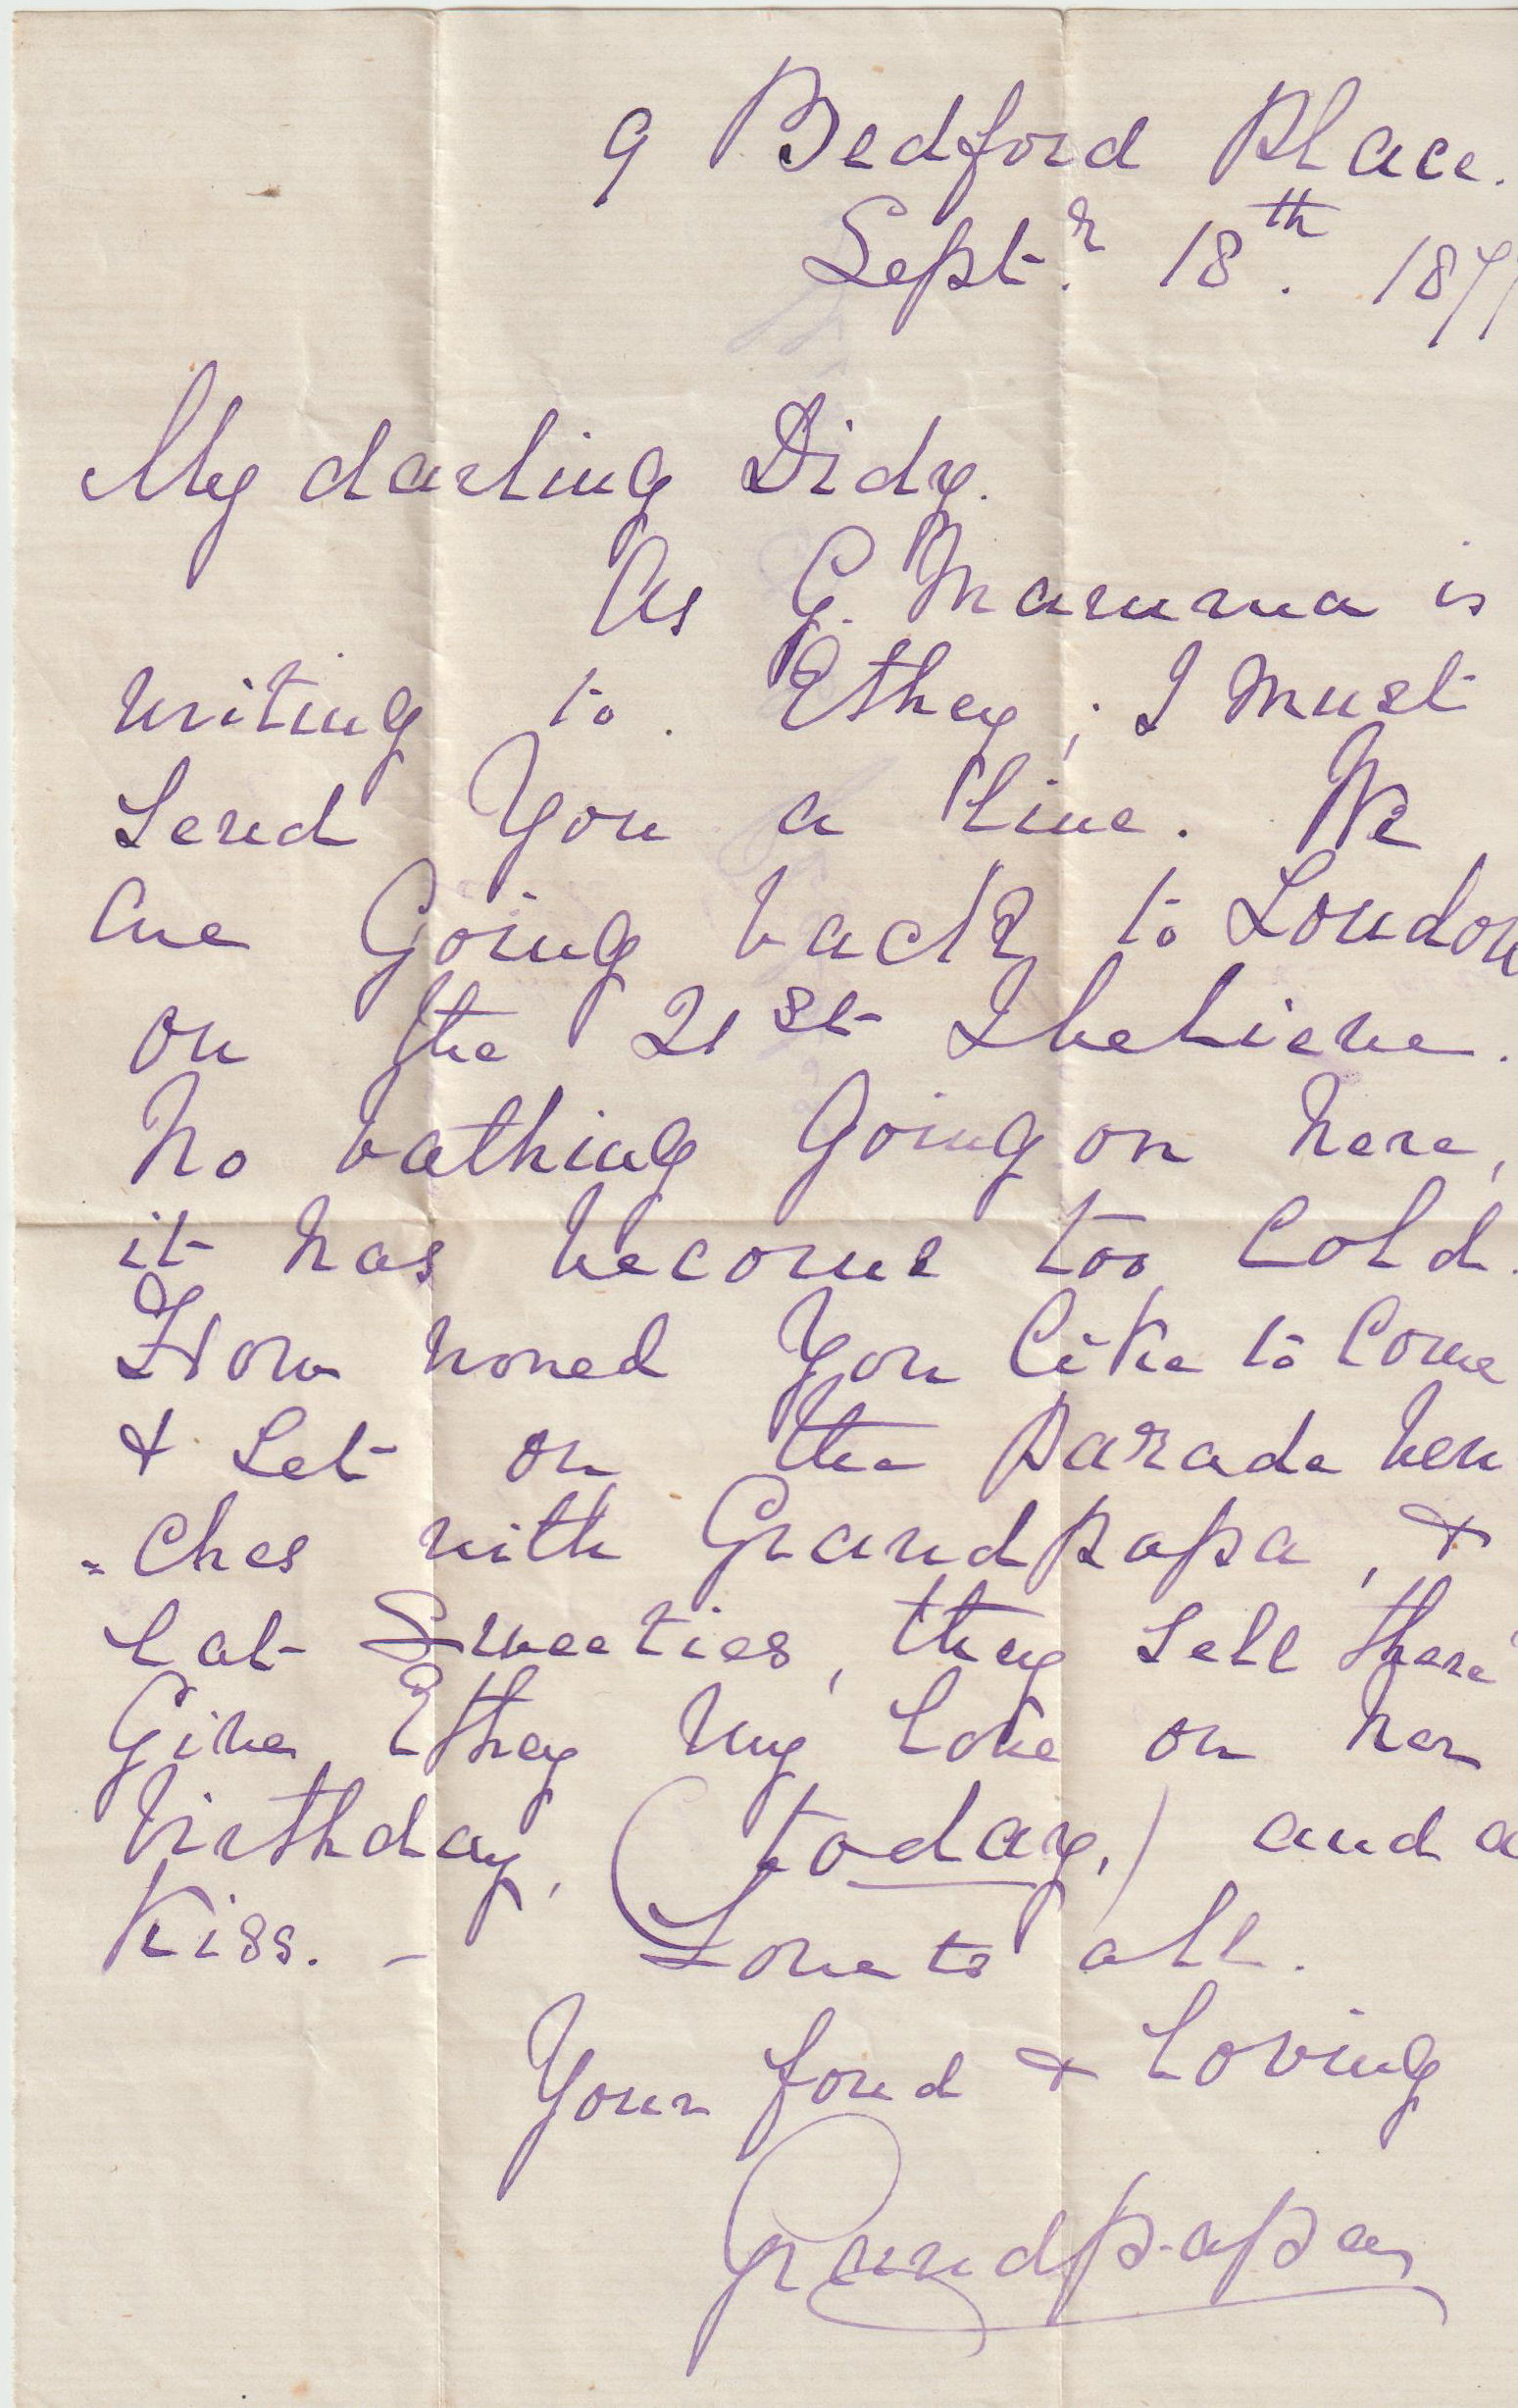 9 Bedford Place.
Septr. 18th. 187
My darling Didy.
As G. Mamma is
writing to Ethey; I must
Send You a line. We
are Going back to London
on the 21st I believe.
No bathing Going on here,
it has become too Cold.
How woued You like to Come
& Set on the parade ben
=ches with Grandpapa, &
Eat Sweeties, they Sell there
Give Ethey my Love on her
birthday, (today,) and a
Kiss. – Love to all.
Your fond & Loving
Grandpapa